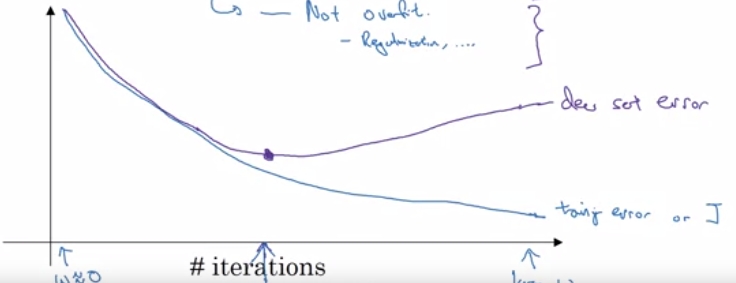 ↳ — Not overfit.
- Regularization, ....
dev set error
traing error or J
# iterations
w≈0